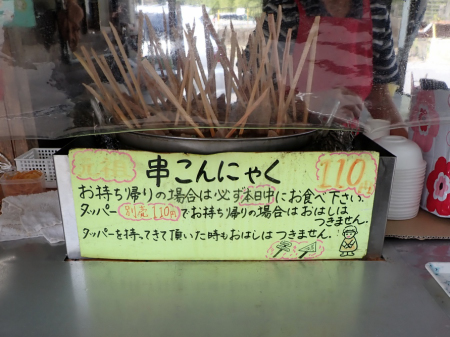 元祖 串こんにゃく 110円
お持ち帰りの場合は必ず本日中にお食べ下さい.
タッパー 別売110円でお持ち帰りの場合はおはしはつきません.
タッパーを持ってきて頂いた時もおはしはつきません.